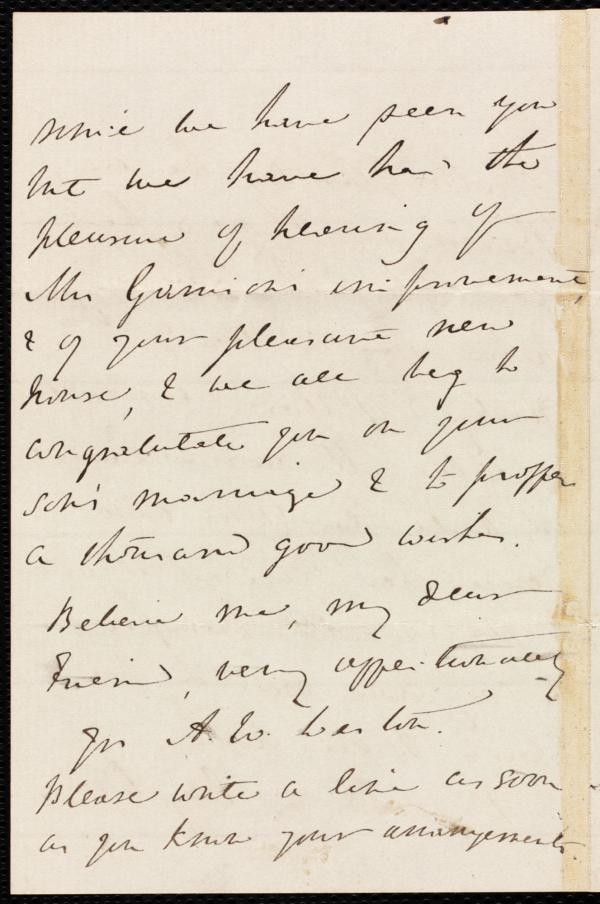 since we have seen you
but we have had the
pleasure of hearing of
Mrs Garrison's improvement,
& of your pleasant new
house, & we all beg to
congratulate you on your
son's marriage & to proffer
a thousand good wishes.
Believe me, my dear
Friend, very affectionately
yrs A. W. Weston.
Please write a line as soon
as you know your arrangements.